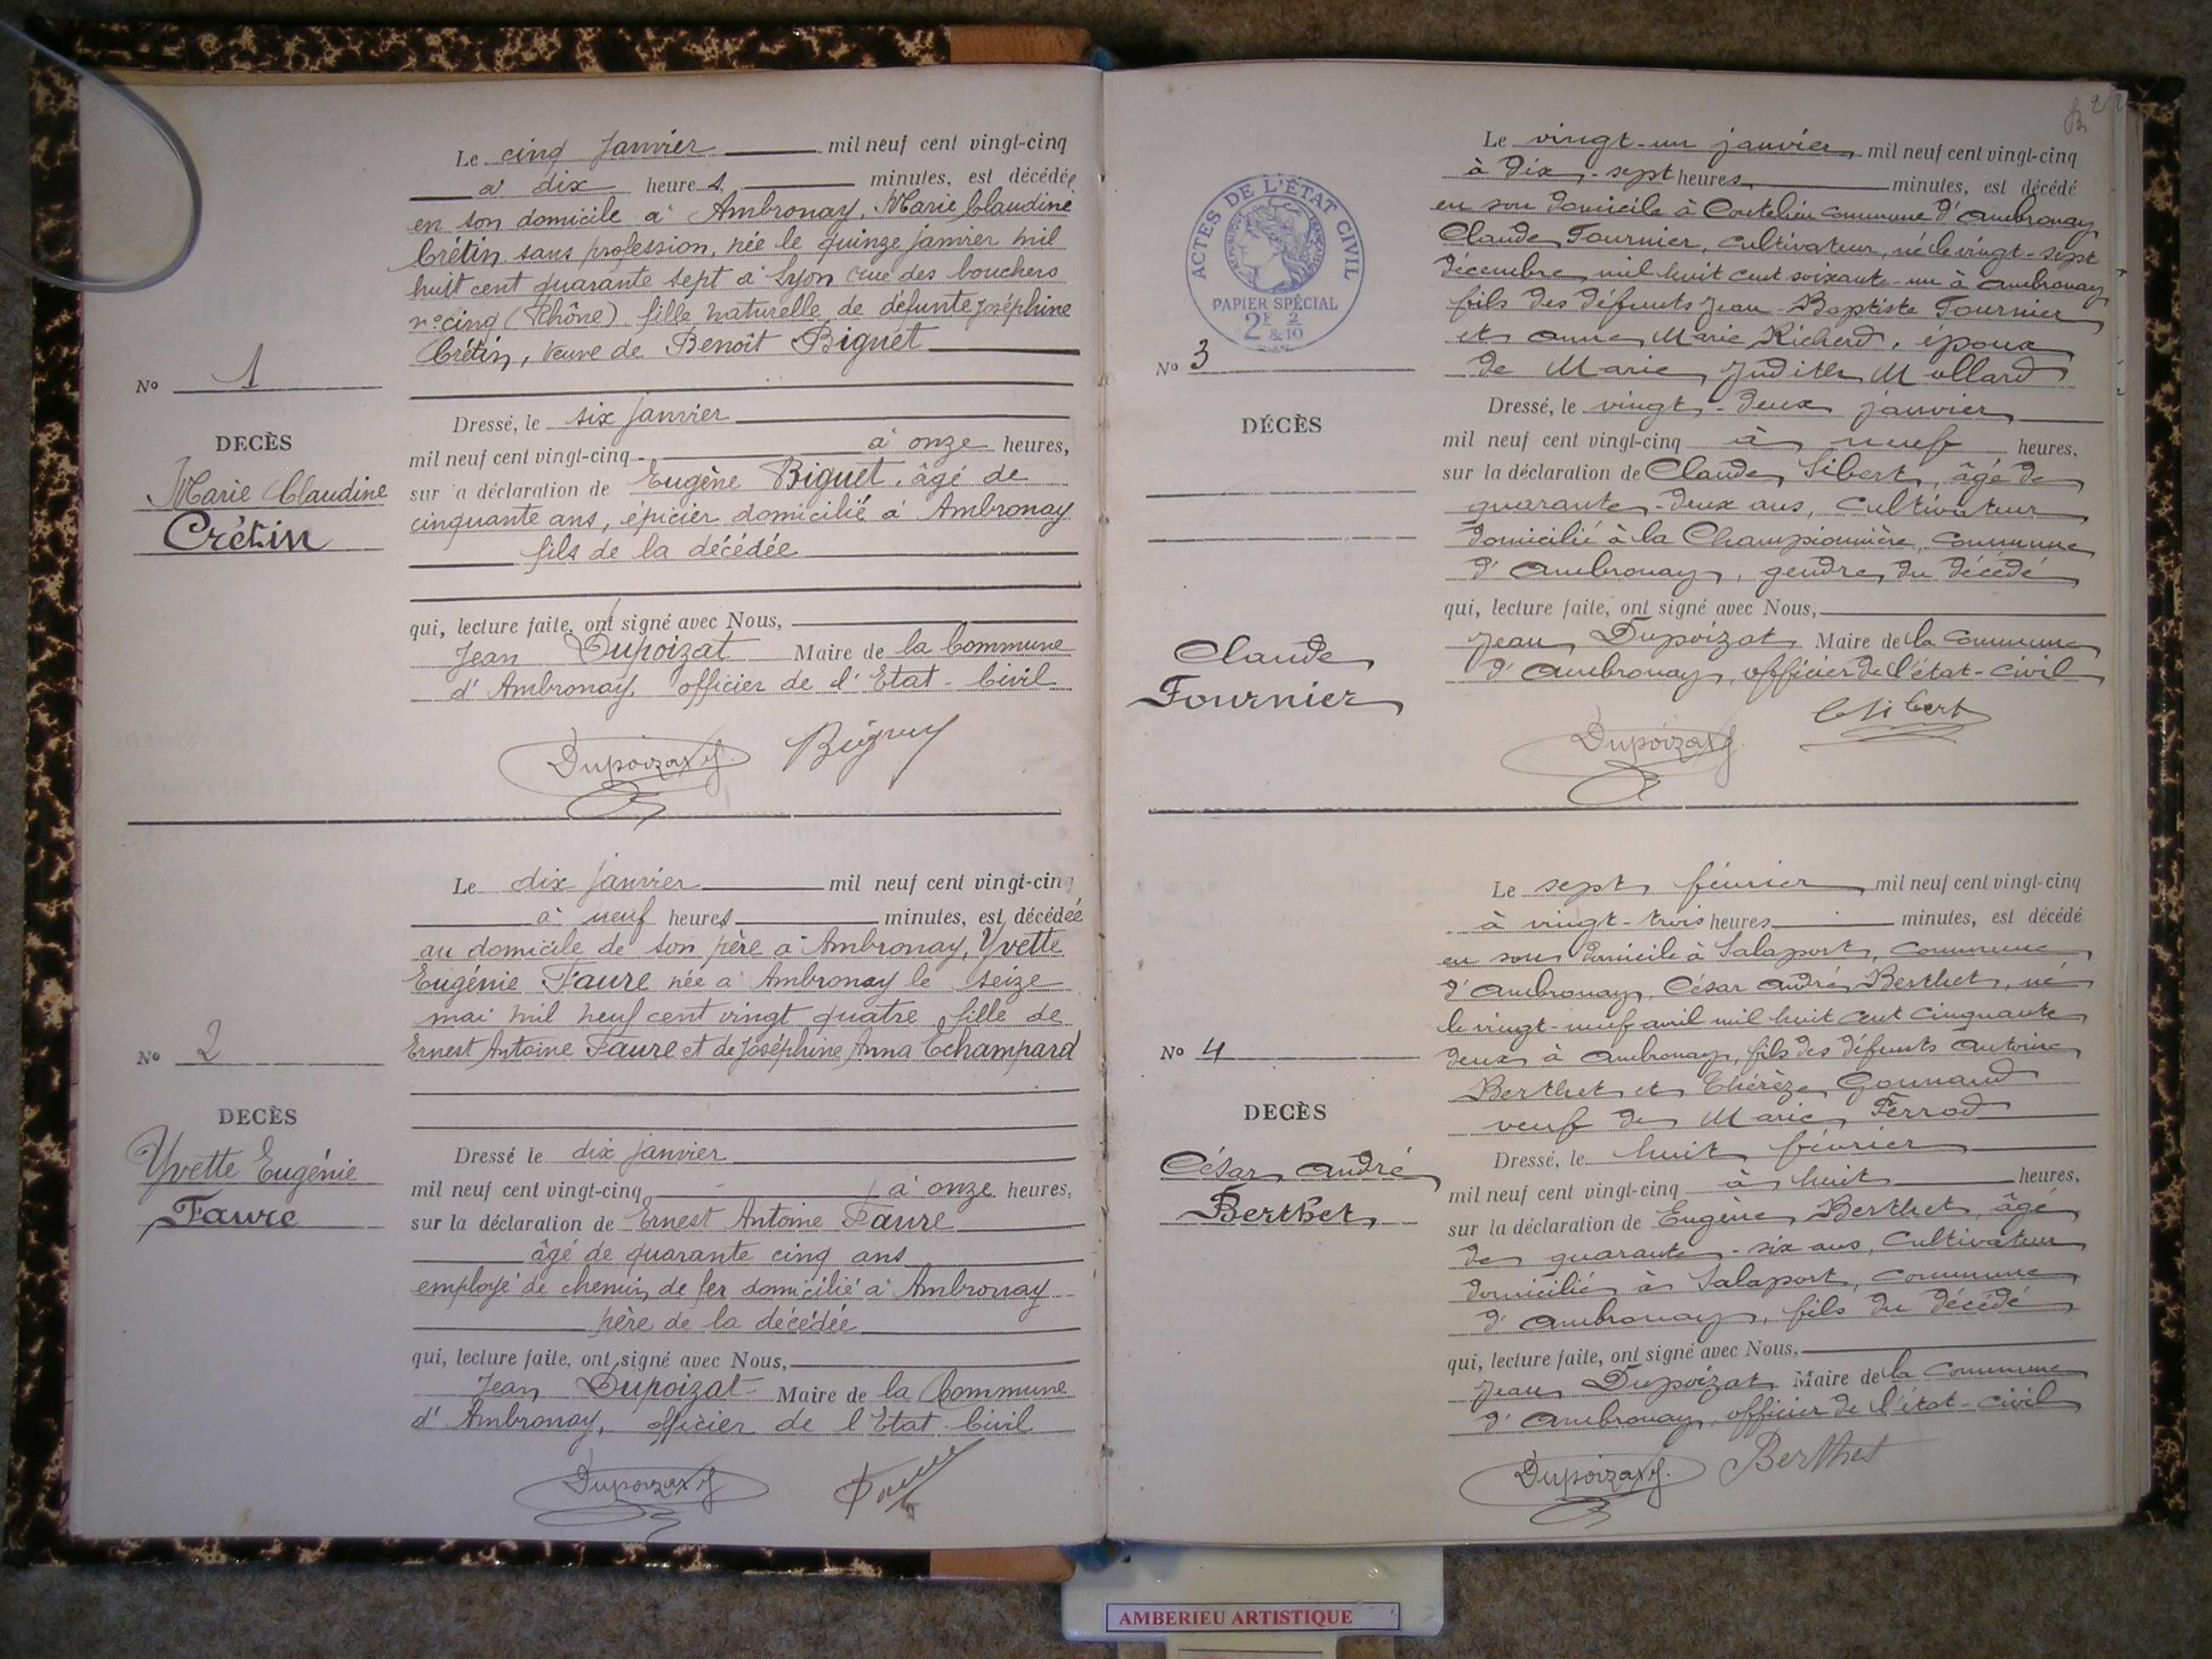 Le cinq Janvier mil neuf cent vingt-cinq
à dix heures, minutes, est décédée
en son domicile à Ambronay, Marie Claudine
Crétin sans profession, née le quinze janvier mil
huit cent quarante sept à Lyon rue des bouchers
n° cinq (Rhône) fille naturelle de défunte Joséphine
Crétin, veuve de Benoît Biguet
No 1
DECÈS
Marie Claudine
Crétin
Dressé, le six janvier
mil neuf cent vingt-cinq à onze heures,
sur a déclaration de Eugène Biguet, âgé de
cinquante ans, épicier domicilié à Ambronay
fils de la décédée
qui, lecture faite, ont signé avec Nous,
Jean Dupoizat Maire de la Commune
d'Ambronay, officier de l'Etat-Civil
Dupoizat J.
Le dix janvier mil neuf cent vingt-cinq
à neuf heures minutes, est décédée
au domicile de son père à Ambronay, Yvette
Eugénie Faure née à Ambronay le seize
mai mil neuf cent vingt quatre fille de
Ernest Antoine Faure et de Joséphine Anna Echampard
No 2
DECÈS
Yvette Eugénie
Faure
Dressé le dix janvier
mil neuf cent vingt-cinq à onze heures,
sur la déclaration de Ernest Antoine Faure
âgé de quarante cinq ans
employé de chemin de fer domicilié à Ambronay
père de la décédée
qui, lecture faite, ont signé avec Nous,
Jean Dupoizat Maire de la Commune
d'Ambronay, officier de l'Etat-Civil
Dupoizat J.
2
ACTES DE L'ÉTAT CIVIL
RÉPUBLIQUE FRANÇAISE
PAPIER SPÉCIAL
2F 2/10
Le vingt-un janvier mil neuf cent vingt-cinq
à dix-sept heures minutes, est décédé
en son domicile à Coutelieu commune d'Ambronay
Claude Fournier, cultivateur, né le vingt-sept
décembre mil huit cent soixante-un à Ambronay
fils des défunts Jean-Baptiste Fournier
et Anne Marie Richerd, époux
de Marie Judith Mollard
No 3
DÉCÈS
Claude
Fournier
Dressé, le vingt-deux janvier
mil neuf cent vingt-cinq à neuf heures,
sur la déclaration de Claude Sibert, âgé de
quarante-deux ans, cultivateur
domicilié à la Championnière, commune
d'Ambronay, gendre du décédé
qui, lecture faite, ont signé avec Nous,
Jean Dupoizat Maire de la commune
d'Ambronay, officier de l'état-civil
Dupoizat J. C Sibert
Le sept février mil neuf cent vingt-cinq
à vingt-trois heures minutes, est décédé
en son domicile à Salaport, commune
d'Ambronay, César André Berthet, né
le vingt-neuf avril mil huit cent cinquante
deux à Ambronay, fils des défunts Antoine
Berthet et Thérèze Gonnand
veuf de Marie Ferrod
No 4
DECÈS
César André
Berthet
Dressé, le huit février
mil neuf cent vingt-cinq à huit heures,
sur la déclaration de Eugène Berthet, âgé
de quarante-six ans, cultivateur
domicilié à Salaport, commune
d'Ambronay, fils du décédé
qui, lecture faite, ont signé avec Nous,
Jean Dupoizat Maire de la commune
d'Ambronay, officier de l'état-civil
Dupoizat J. Berthet
AMBERIEU ARTISTIQUE